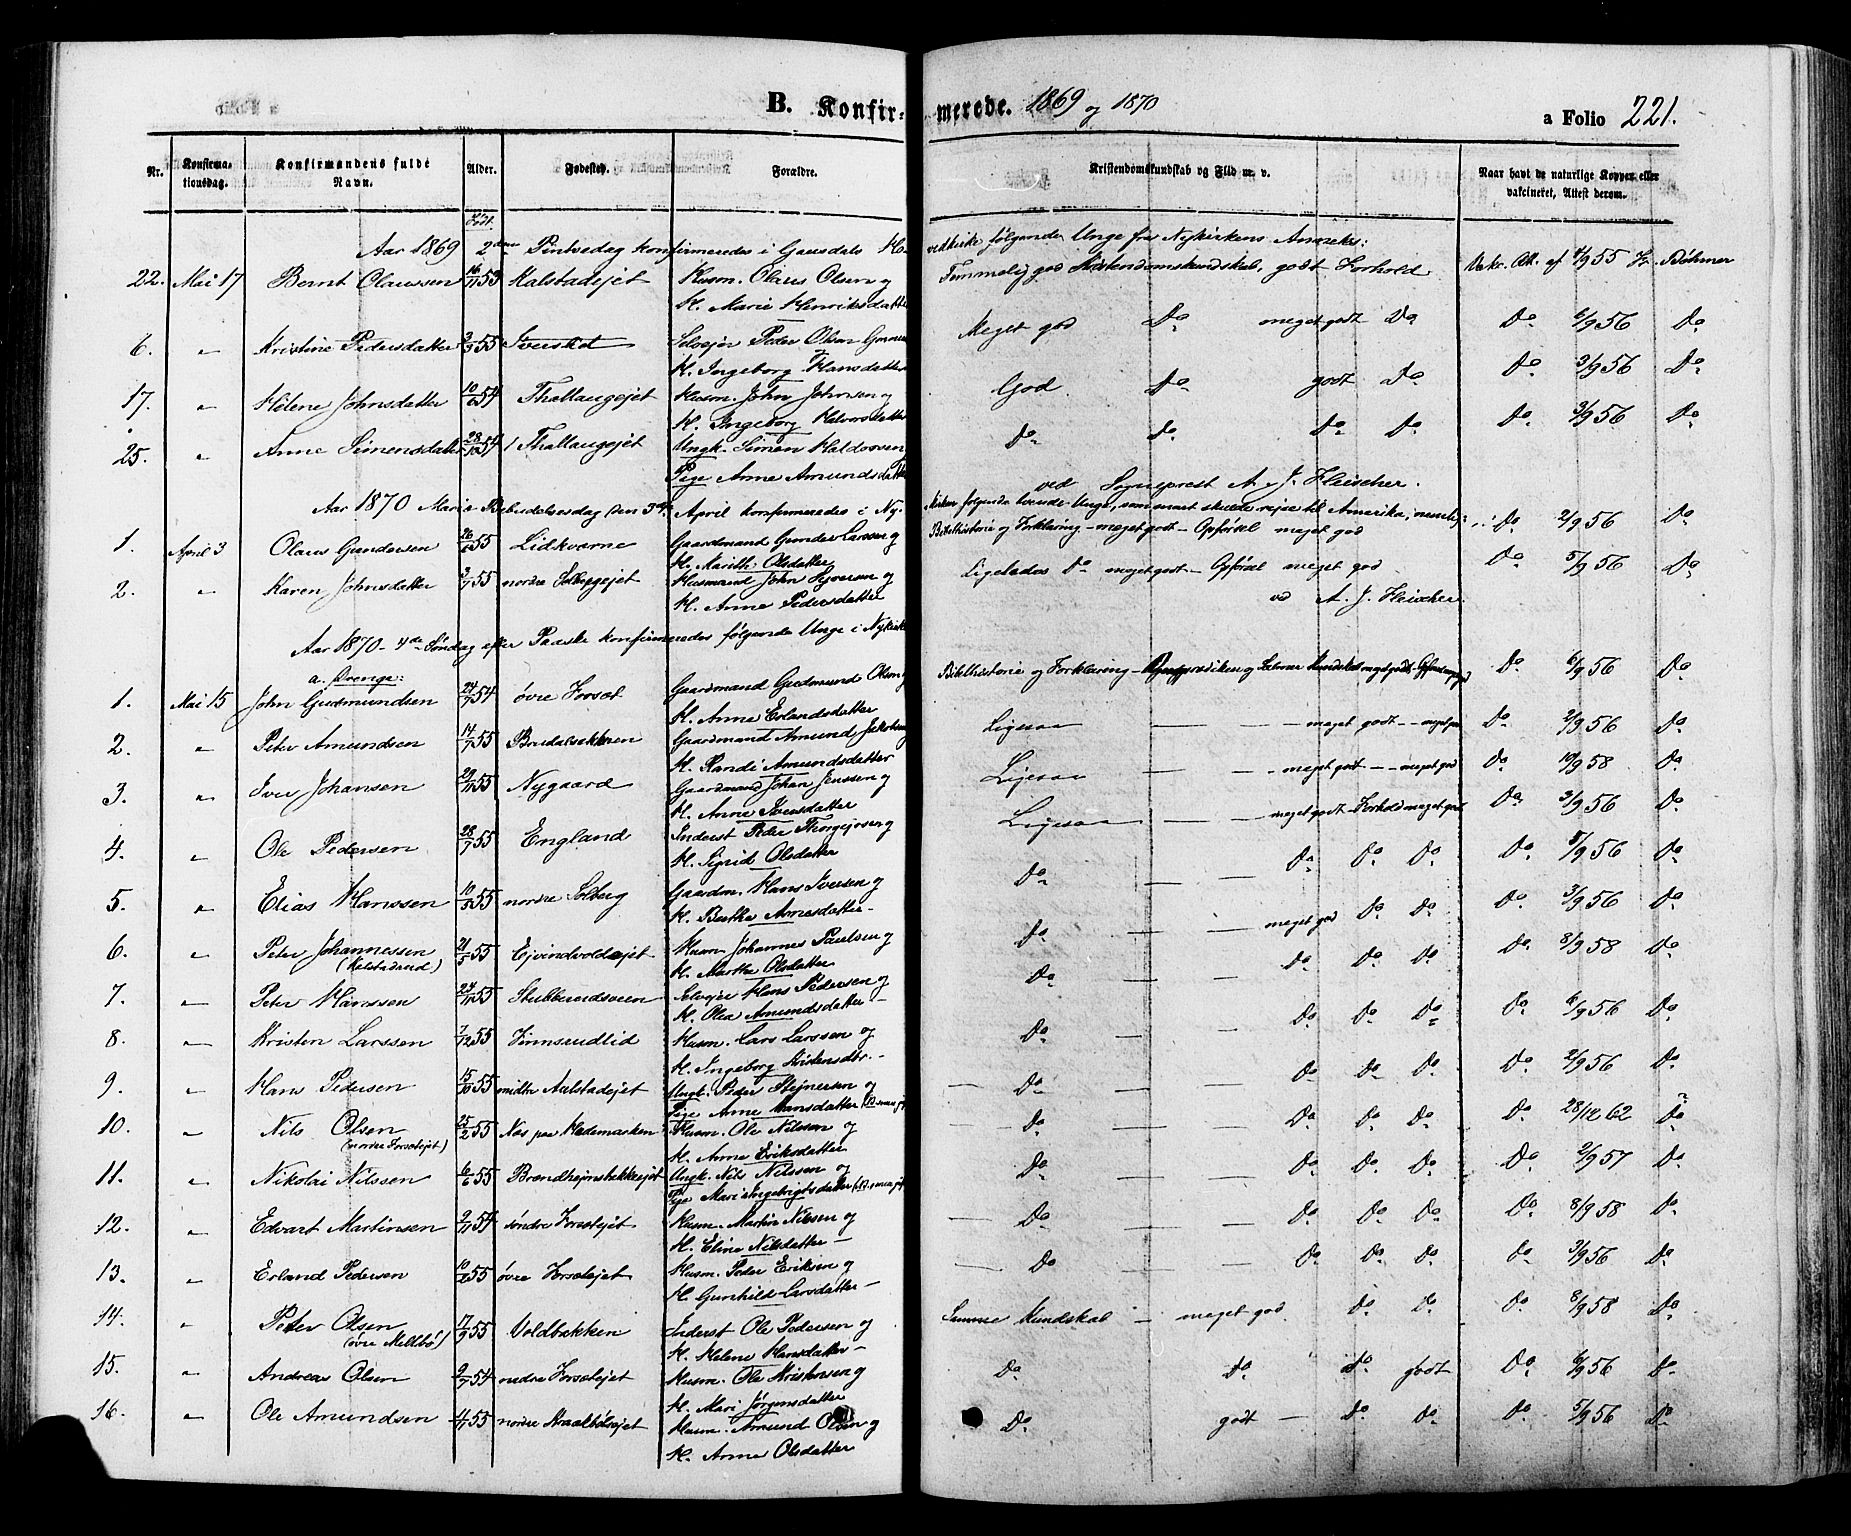 B. Konfirmerede. 1869 og 1870 a Folio 221.
Nr. Konfirmationsdag. Konfirmandens fulde Navn. Alder. Fødested. Forældre. Kristendomskundskab og Flid m. v. Naar havt de naturlige Kopper eller vakcineret, Attest derom.
Født.
Aar 1869 2den Pintsedag konfirmeredes i Gausdals Hovedkirke følgende Unge fra Nykirkens Annexs:
22. Mai 17 Bernt Olaussen 16/11 53 Kalstadejet Husm. Olaus Olsen og Temmelig god Kristendomskundskab, godt Forhold. Vakc. Att. af 4/9 55 Hr. Bøhmer
K. Marie Henriksdatter
6. " Kristine Pedersdatter 2/3 55 Sveistad Selvejer Peder Olsen Meget god Do meget godt Do Do 6/9 56 Do
K. Ingeborg Hansdatter
17. " Helene Johnsdatter 10/6 54 Thallaugejet Husm. John Johnsen og God Do godt Do Do 3/9 56 Do
K. Ingeborg Halvorsdatter
25. " Anne Simensdatter 28/10 54 Thallaugejet Ungk. Simen Haldorsen Do Do Do Do Do 3/9 56 Do
Pige Anne Amundsdatter
ved Sogneprest A. J. Fleischer.
Aar 1870 Mariæ Bebudelsesdag den 3die April konfirmeredes i Nykirken følgende tvende Unge, som snart skulde rejse til Amerika, nemlig:
1. April 3 Olaus Gundersen 26/6 55 Lidkværne Gaardmand Gunder Larssen og Bibelhistorie og Forklaring - meget godt - Opførsel meget god Do 2/9 56 Do
K. Marith Olsdatter
2. " Karen Johnsdatter 3/7 55 nordre Solbergejet Husmand John Iversen og Ligeledes Do meget godt - Opførsel meget god Do 5/9 56 Do
K. Anne Pedersdatter
ved A. J. Fleischer.
Aar 1870 - 4de Søndag efter Paaske konfirmeredes følgende Unge i Nykirken
a. Drenge:
1. Mai 15 John Gudmundsen 24/7 54 øvre Forset Gaardmand Gudmund Olsen og Bibelhistorie og Forklaring Do 6/9 56 Do
K. Anne Erlandsdatter
2. " Peter Amundsen 14/7 55 Bredalsekeren Gaardmand Amund Jakobsen Ligesaa — — - meget godt - - meget god Do 2/9 56 Do
K. Randi Amundsdatter
3. " Iver Johansen 29/11 55 Nygaard Gaardmand Johan Jenssen og Ligesaa — — - meget godt - - meget god Do 10/9 58 Do
K. Anne Iversdatter
4. " Ole Pedersen 28/7 55 England Inderst Peder Thorgejrsen og Ligesaa — — meget godt - Forhold meget god Do 3/9 56 Do
K. Sigrid Olsdatter
5. " Elias Hanssen 10/5 55 nordre Solberg Gaardm. Hans Iversen og Do — — Do Do Do Do 5/9 56 Do
K. Berthe Arnesdatter -
6. " Peter Johannessen 21/5 55 Ejvindvoldejet Husm. Johannes Paulsen og Do — — meget god Do Do Do 3/9 56 Do
(Kalstadrud) K. Marthe Olsdatter
7. " Peter Hanssen 24/11 55 Stubberudsveen Selvejer Hans Pedersen og Do — — Do Do Do Do 8/9 58 Do
K. Olea Amundsdatter -
8. " Kristen Larssen 7/12 55 Finnsrudlid Husm. Lars Larssen og Do — — Do Do Do Do 6/9 56 Do
K. Ingeborg Kristensdtr. -
9. " Hans Pedersen 15/10 55 midtre Aalstadejet Ungk. Peder Stejnersen og — Do — — Do Do Do Do 2/9 56 Do
Pige Anne Hansdatter
10. " Nils Olsen 25/2 55 Næs paa Hedemarken Husm. Ole Nilssen og — Do — — Do Do Do Do 28/12 62 Do
(nordre Forsetejet) K. Anne Eriksdatter
11. " Nikolai Nilssen 6/6 55 Brændhejmsbakkejet Ungk. Nils Nilssen og Do — — Do Do Do Do 2/9 57 Do
Pige Mari Ingebrigtsdatter
12. " Edvart Martinsen 2/11 54 søndre Forsetejet Husm. Martin Nilssen og — Do — — Do Do Do Do 8/9 58 Do
K. Eline Nilsdatter -
13. " Erland Pedersen 10/2 55 øvre Forsetejet Husm. Peder Eriksen og Do — — Do Do Do Do 3/9 56 Do
K. Gunhild Larsdatter -
14. " Peter Olsen 17/9 55 Voldbakken Inderst Ole Pedersen og Samme Kundskab - meget god Do Do Do 8/9 58 Do
(øvre Mellbø) K. Helene Hansdatter -
15. " Andreas Olsen 2/7 54 nedre Forsetejet Husm. Ole Kristensen og Do Do Do godt Do 6/9 56 Do
K. Mari Jørgensdatter
16. " Ole Amundsen 4/7 55 nordre Skaalbølsejet Husm. Amund Olsen og Do godt — Do Do Do 5/9 56 Do
K. Anne Olsdatter